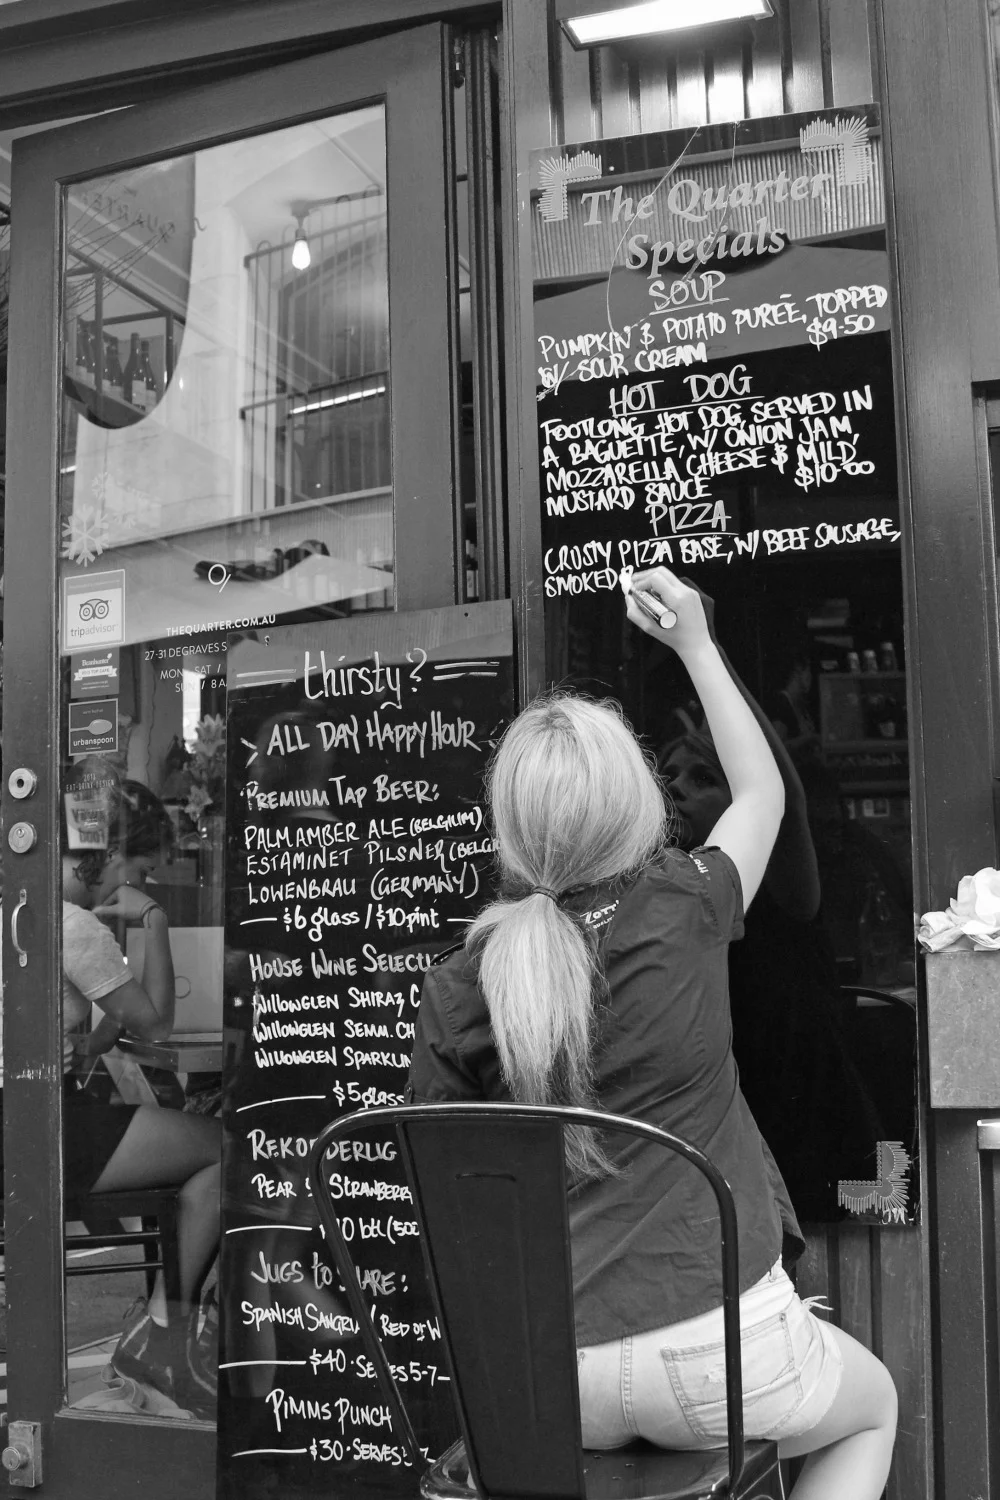 The Quarter
Specials
SOUP
PUMPKIN & POTATO PURÉE, TOPPED
W/ SOUR CREAM $9-50
HOT DOG
FOOTLONG HOT DOG, SERVED IN
A BAGUETTE, W/ ONION JAM,
MOZZARELLA CHEESE & MILD
MUSTARD SAUCE $10-00
PIZZA
CRUSTY PIZZA BASE, W/ BEEF SAUSAGE,
SMOKED
tripadvisor
THEQUARTER.COM.AU
27-31 DEGRAVES S
MON SAT /
SUN / 8 A
urbanspoon
thirsty?
ALL DAY HAPPY HOUR
PREMIUM TAP BEER:
PALM AMBER ALE (BELGIUM)
ESTAMINET PILSNER (BELGI
LOWENBRAU (GERMANY)
$6 glass / $10 pint
HOUSE WINE SELECTI
WILLOWGLEN SHIRAZ C
WILLOWGLEN SEMM. CH
WILLOWGLEN SPARKLIN
$5 glass
REKO DERLIG
PEAR & STRAWBERR
10 btl (500
JUGS to ARE:
SPANISH SANGRIA (RED or W
$40 · SERVES 5-7
PIMMS PUNCH
$30 · SERVES